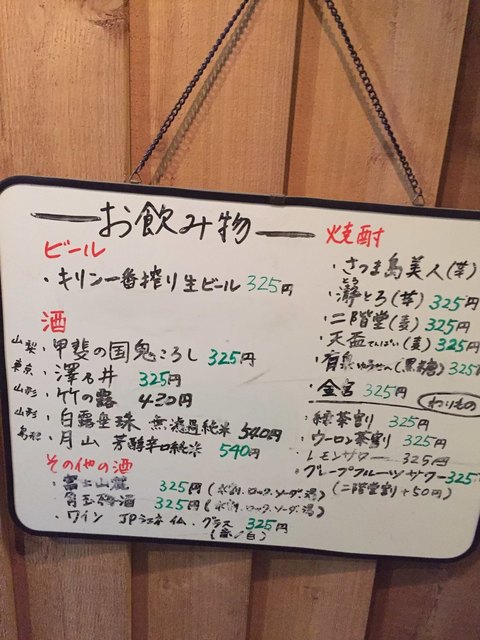 お飲み物
ビール
・キリン一番搾り生ビール 325円
酒
山梨・甲斐の国鬼ころし 325円
東京・澤乃井 325円
山形・竹の露 420円
山形・白露垂珠 無濾過純米 540円
島根・月山 芳醇辛口純米 540円
その他の酒
・富士山麓 325円(水割、ロック、ソーダ、湯)
・角玉梅酒 325円(水割、ロック、ソーダ、湯)
・ワイン グラス 325円
(赤/白)
焼酎
・さつま島美人(芋)
・とろ(芋) 325円
・二階堂(麦) 325円
・天盃てんぱい(麦) 325円
・有泉ゆうせん(黒糖) 325
・金宮 325円
わりもの
・緑茶割り 325円
・ウーロン茶割り 325円
・レモンサワー 325円
・グレープフルーツサワー 325
(二階堂割+50円)